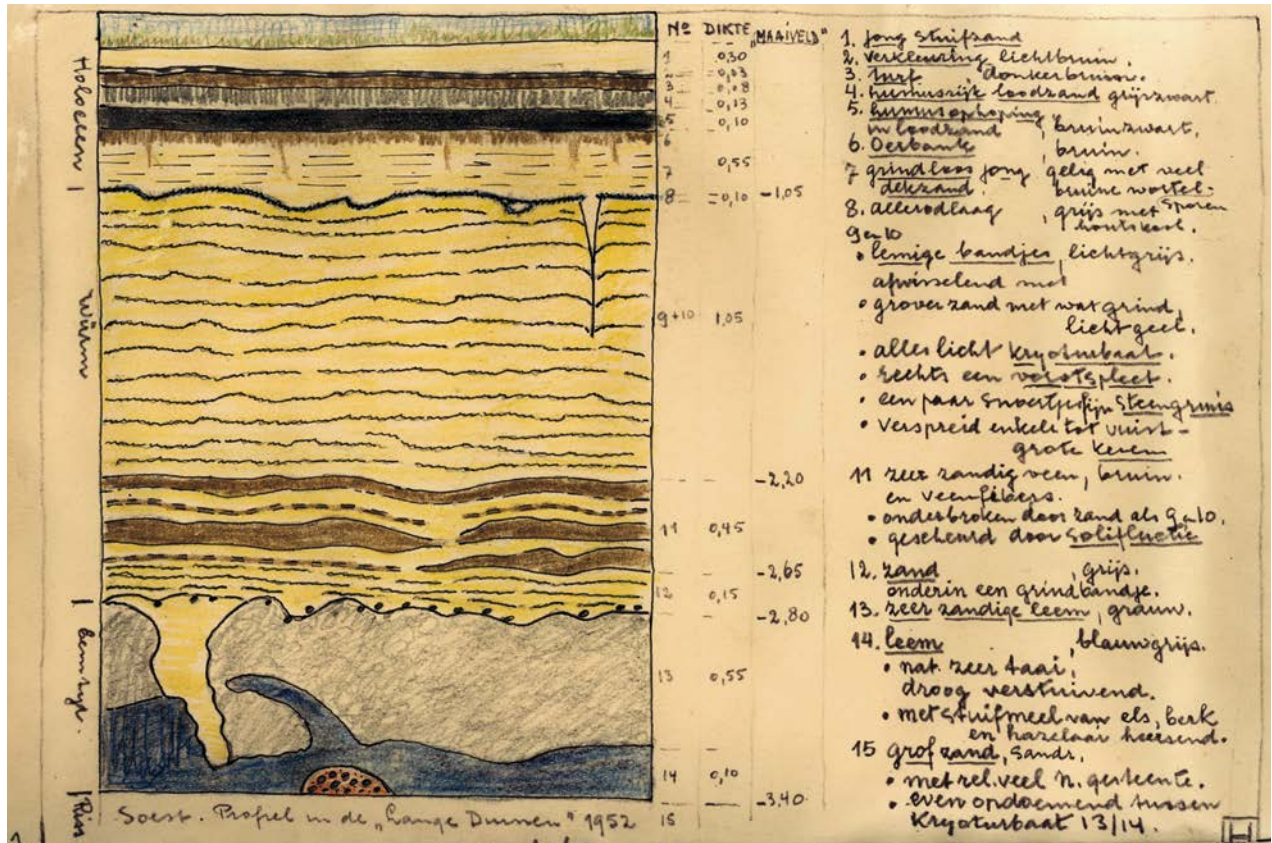 Nº DIKTE "MAAIVELD"
1 0,30
2 0,03
3 0,08
4 0,13
5 0,10
6
7 0,55
8 0,10 -1,05
9+10 1,05
-2,20
11 0,45
-2,65
12 0,15
-2,80
13 0,55
14 0,10
-3,40
15
Holoceen
Würm
Eemtijd.
Riss
1. jong stuifzand
2. verkleuring lichtbruin.
3. turf, donkerbruin.
4. humusrijk loodzand grijszwart
5. humusophoping
in loodzand, bruinzwart.
6. Oerbank, bruin.
7 grindloos jong gelig met veel
dekzand. bruine wortel-
sporen
8. allerødlaag, grijs met
houtskool.
9 en 10
• lemige bandjes, lichtgrijs.
afwisselend met
• grover zand met wat grind,
licht geel.
• alles licht kryoturbaat.
• rechts een vorstspleet.
• een paar snoertjes fijn steengruis
• verspreid enkele tot vuist-
grote keien
11 zeer zandig veen, bruin.
en veenfibers.
• onderbroken door zand als 9 en 10.
• gescheurd door solifluctie
12. zand, grijs.
onderin een grindbandje.
13. zeer zandige leem, grauw.
14. leem, blauwgrijs.
• nat zeer taai,
droog verstuivend.
• met stuifmeel van els, berk
en hazelaar heersend.
15 grof zand, Sandr,
• met rel. veel n. gesteente.
• even opdoemend tussen
Kryoturbaat 13/14.
Soest. Profiel in de "Lange Duinen" 1952
H